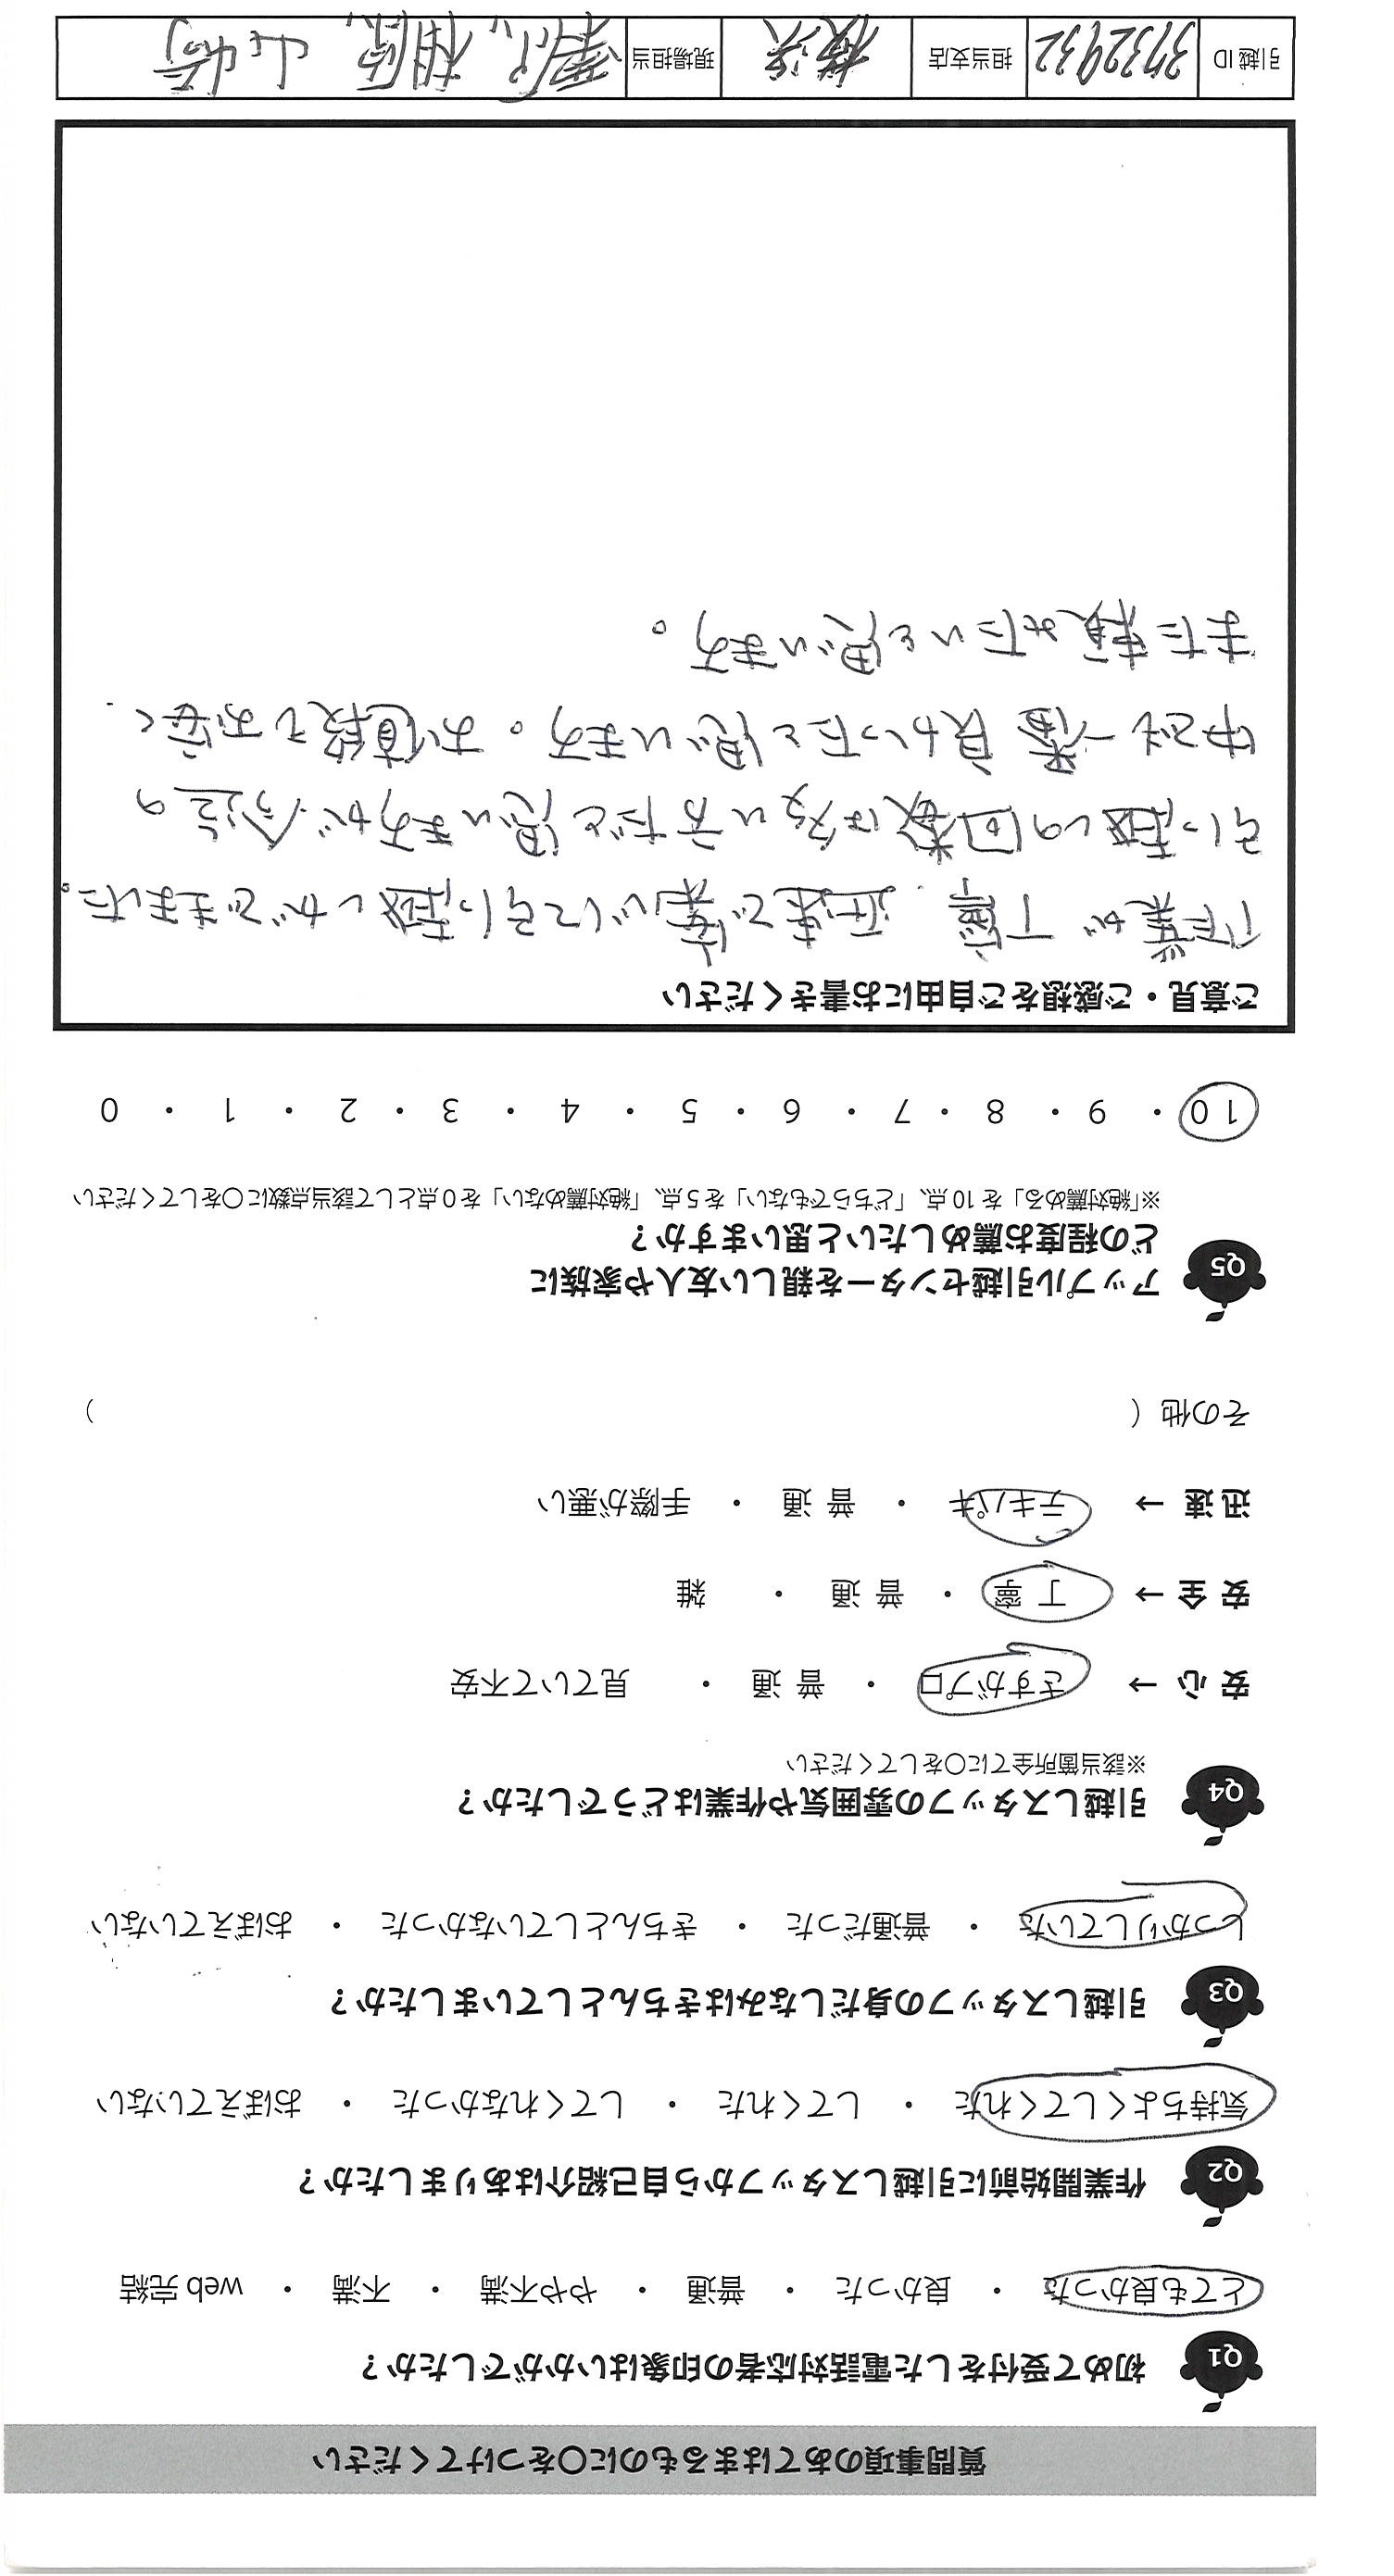 質問事項のあてはまるものに○をつけてください
Q1 初めて受付をした電話対応者の印象はいかがでしたか?
とても良かった ・ 良かった ・ 普通 ・ やや不満 ・ 不満 ・ web 完結
Q2 作業開始前に引越しスタッフから自己紹介はありましたか?
気持ちよくしてくれた ・ してくれた ・ してくれなかった ・ おぼえていない
Q3 引越しスタッフの身だしなみはきちんとしていましたか?
しっかりしていた ・ 普通だった ・ きちんとしていなかった ・ おぼえていない
Q4 引越しスタッフの雰囲気や作業はどうでしたか?
※該当箇所全てに○をしてください
安 心 → さすがプロ ・ 普 通 ・ 見ていて不安
安 全 → 丁 寧 ・ 普 通 ・ 雑
迅 速 → テキパキ ・ 普 通 ・ 手際が悪い
その他 ( )
Q5 アップル引越センターを親しい友人や家族に
どの程度お薦めしたいと思いますか?
※「絶対薦める」を10点、「どちらでもない」を5点、「絶対薦めない」を0点として該当点数に○をしてください
10 ・ 9 ・ 8 ・ 7 ・ 6 ・ 5 ・ 4 ・ 3 ・ 2 ・ 1 ・ 0
ご意見・ご感想をご自由にお書きください
作業が丁寧、迅速で安心して引っ越しができました。
引っ越しの回数は多い方だと思いますが今迄の
中で一番良かったと思います。お値段もお安く、
また頼みたいと思います。
引越ID 3732932 担当支店 横浜 現場担当 相原、山崎